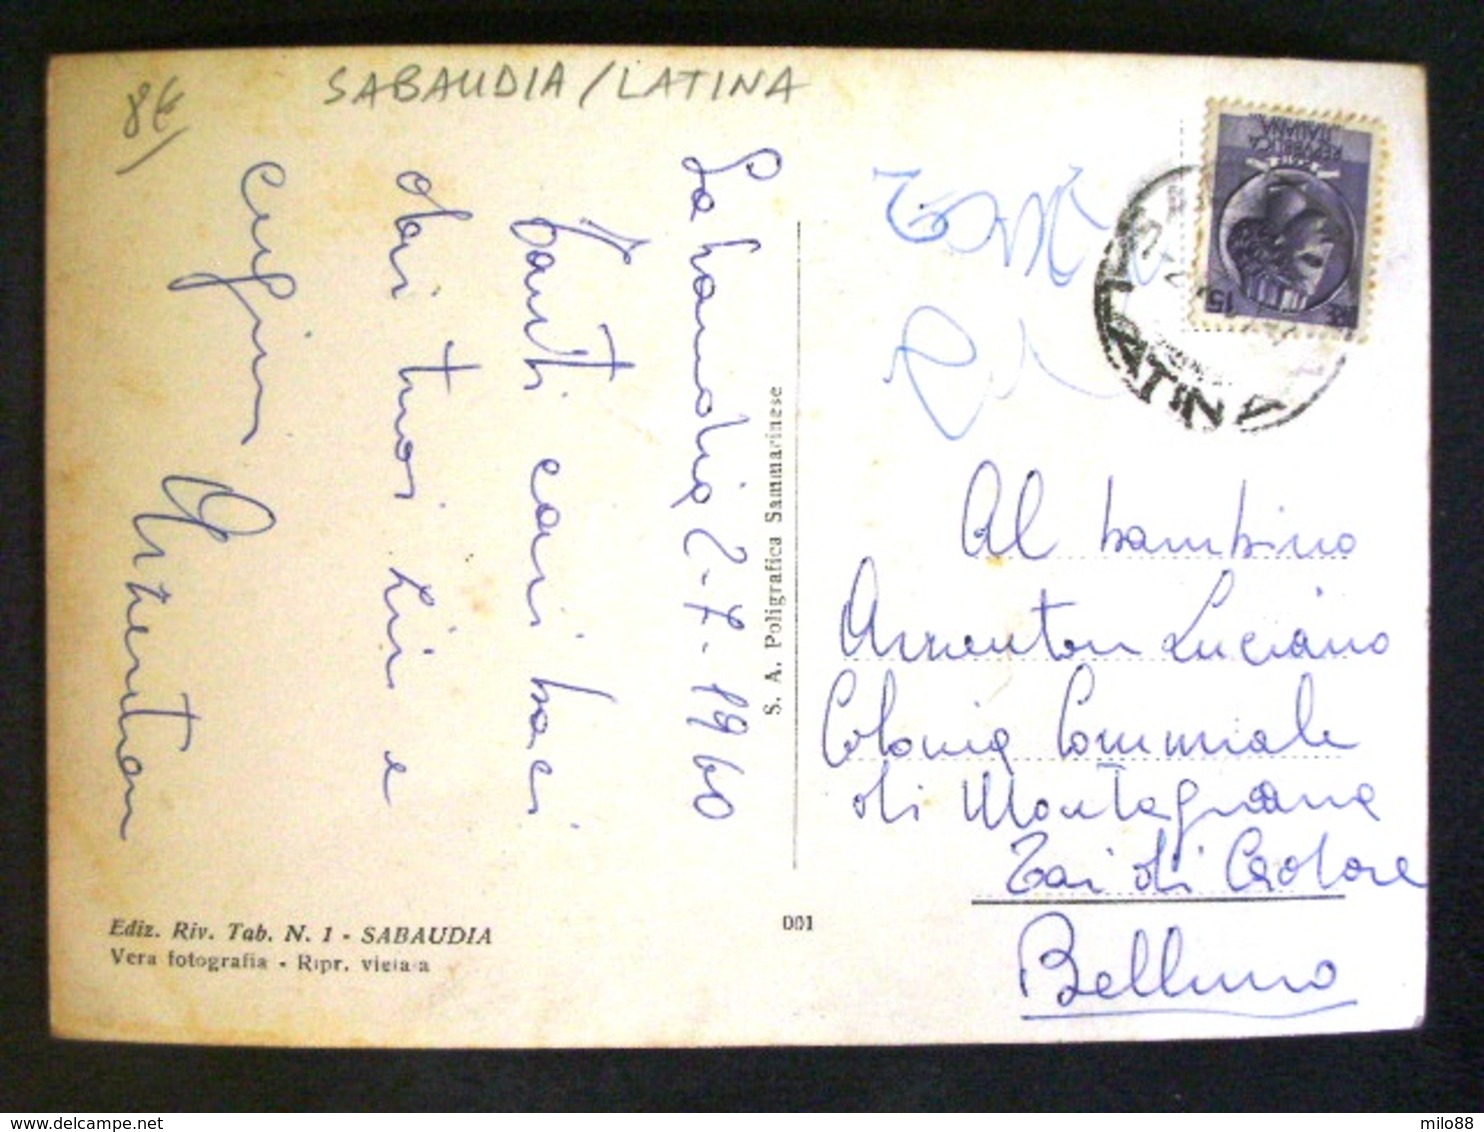 8€
SABAUDIA/LATINA
Sabaudia 2-7-1960
Tanti cari baci
dai tuoi zii e
cugini
Argenton
S. A. Poligrafica Sammarinese
REPVBBLICA
ITALIANA
15
LATINA
Al bambino
Luciano
Colonia Comunale
di Montagnana
Tai di Cadore
Belluno
Ediz. Riv. Tab. N. 1 - SABAUDIA
Vera fotografia - Ripr. vietata
001
milo88